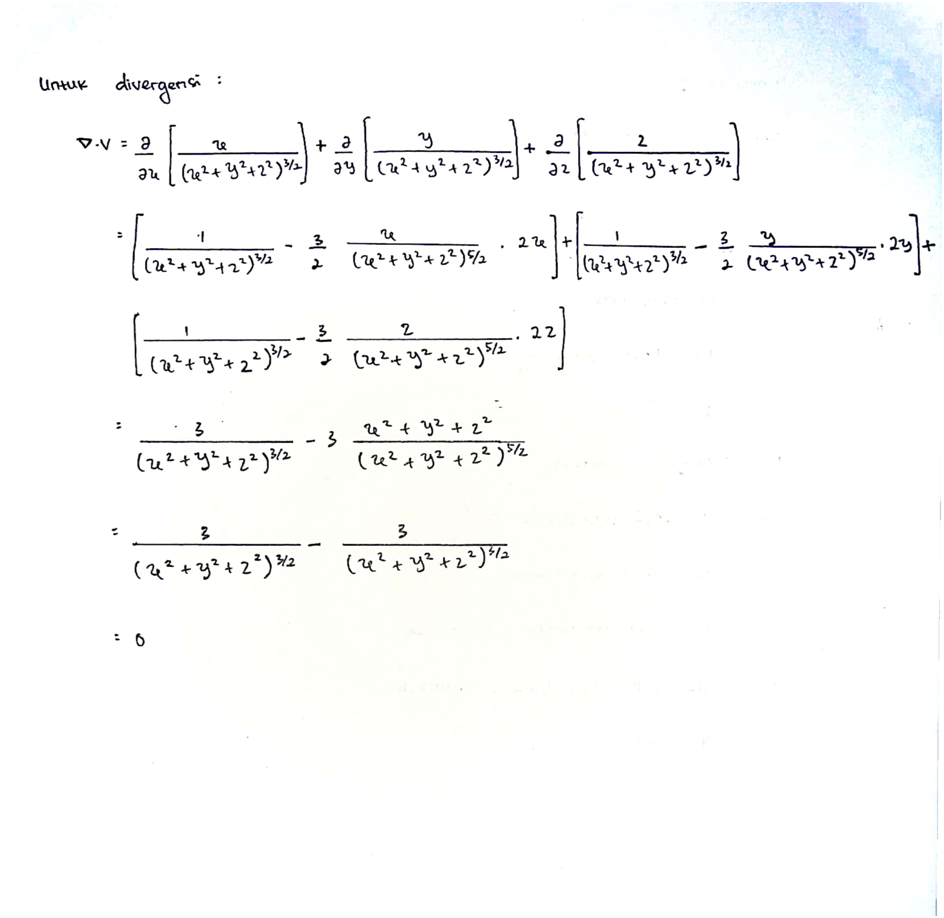 Untuk divergensi :
∇·V = ∂/∂x [x/(x²+y²+z²)^3/2] + ∂/∂y [y/(x²+y²+z²)^3/2] + ∂/∂z [z/(x²+y²+z²)^3/2]
= [1/(x²+y²+z²)^3/2 - 3/2 x/(x²+y²+z²)^5/2 · 2x] + [1/(x²+y²+z²)^3/2 - 3/2 y/(x²+y²+z²)^5/2 · 2y] +
[1/(x²+y²+z²)^3/2 - 3/2 z/(x²+y²+z²)^5/2 · 2z]
= 3/(x²+y²+z²)^3/2 - 3 x²+y²+z²/(x²+y²+z²)^5/2
= 3/(x²+y²+z²)^3/2 - 3/(x²+y²+z²)^3/2
= 0